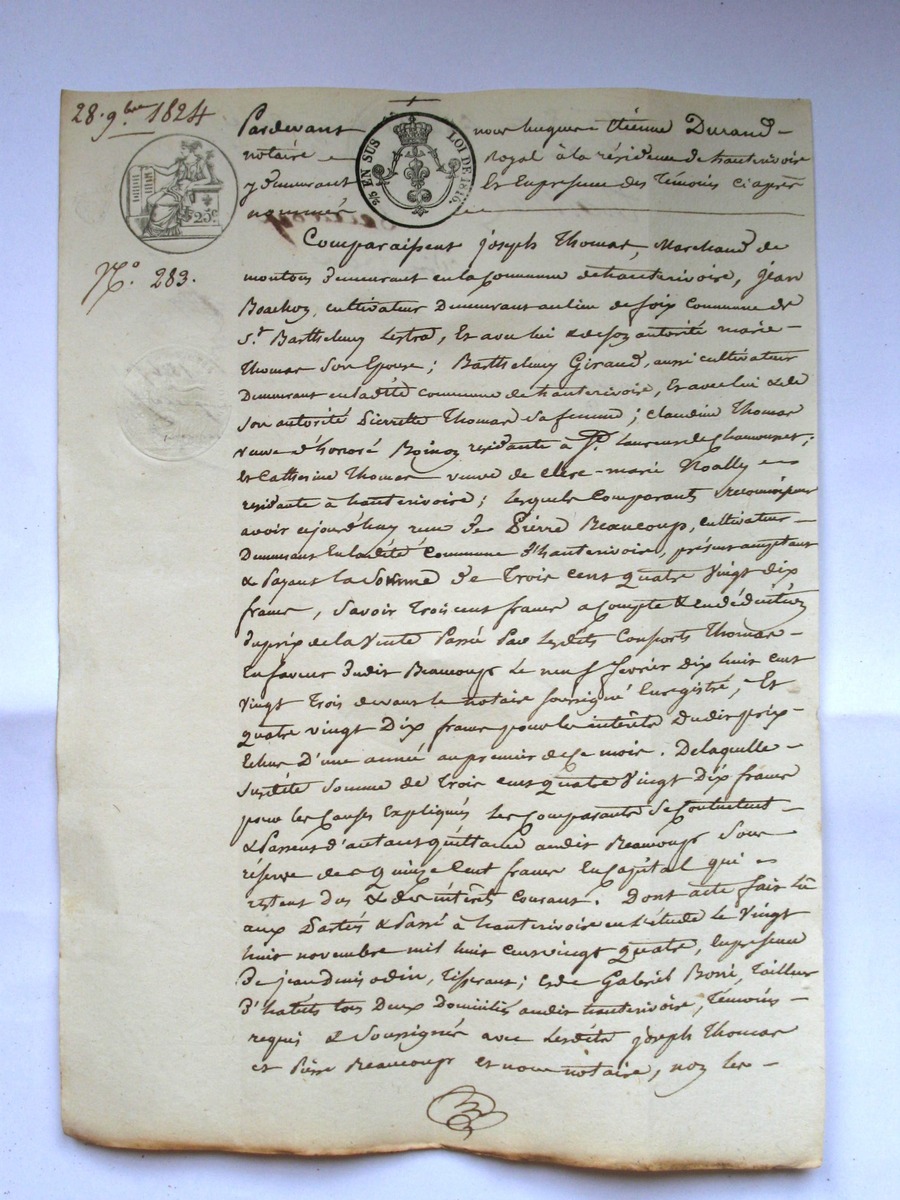 28. 9bre 1824
Pardevant nous hugues Etienne Durand
notaire Royal à la résidence de hauterivoire
25 EN SUS LOI DE 1816.
y demeurant Et En presence des Témoins ci après
nommés
25c
Comparaissent joseph Thomas, Marchand de
No. 283.
moutons demeurant en la Commune de hauterivoire, jean
cultivateur Demeurant au lieu de foix Commune de
St. Barthelemy Lestra, Et avec lui & de son autorité marie
Thomas son Epouse; Barthelemy Giraud, aussi cultivateur
Demeurant en ladite commune de hauterivoire, Et avec lui & de
son autorité Pierrette Thomas sa femme; claudine Thomas
veuve d'honoré residante à St. Laurent de Chamousset;
Et Catherine Thomas veuve de clere-marie Noally
residante à hauterivoire; Lesquels Comparants
avoir cejourd'huy reçu de Pierre Beaucoup, cultivateur
Demeurant En ladite Commune d'hauterivoire, présent acceptant
& Payant la Somme de Trois cent quatre Vingt dix
francs, Savoir Trois cent francs a Compte & en déduction
du prix de la Vente Passée Par Lesdits Consorts Thomas
En faveur dudit Beaucoup Le neuf fevrier dix huit cent
vingt Trois devant le notaire soussigné Enregistré, Et
quatre vingt Dix francs pour les intérêts dudit prix
Echus D'une année au premier de ce mois. De laquelle
susdite Somme de Trois cent quatre Vingt Dix francs
pour les Causes Expliqués Les Comparants Se Contentent
& Passent d'autant quittance audit Beaucoup Sous
réserve des Quinze Cent francs En Capital qui
restent dus & des intérêts Courant. Dont acte fait Lû
aux Parties & Passé à hauterivoire en L'étude Le Vingt
huit novembre mil huit cent vingt quatre, En presence
De jean denis odin, Tisserant; & de Gabriel Tailleur
d'habits tous Deux Domiciliés audit hauterivoire, Témoins
requis & Soussignés avec Lesdits joseph Thomas
et Pierre Beaucoup et nous notaire, non les